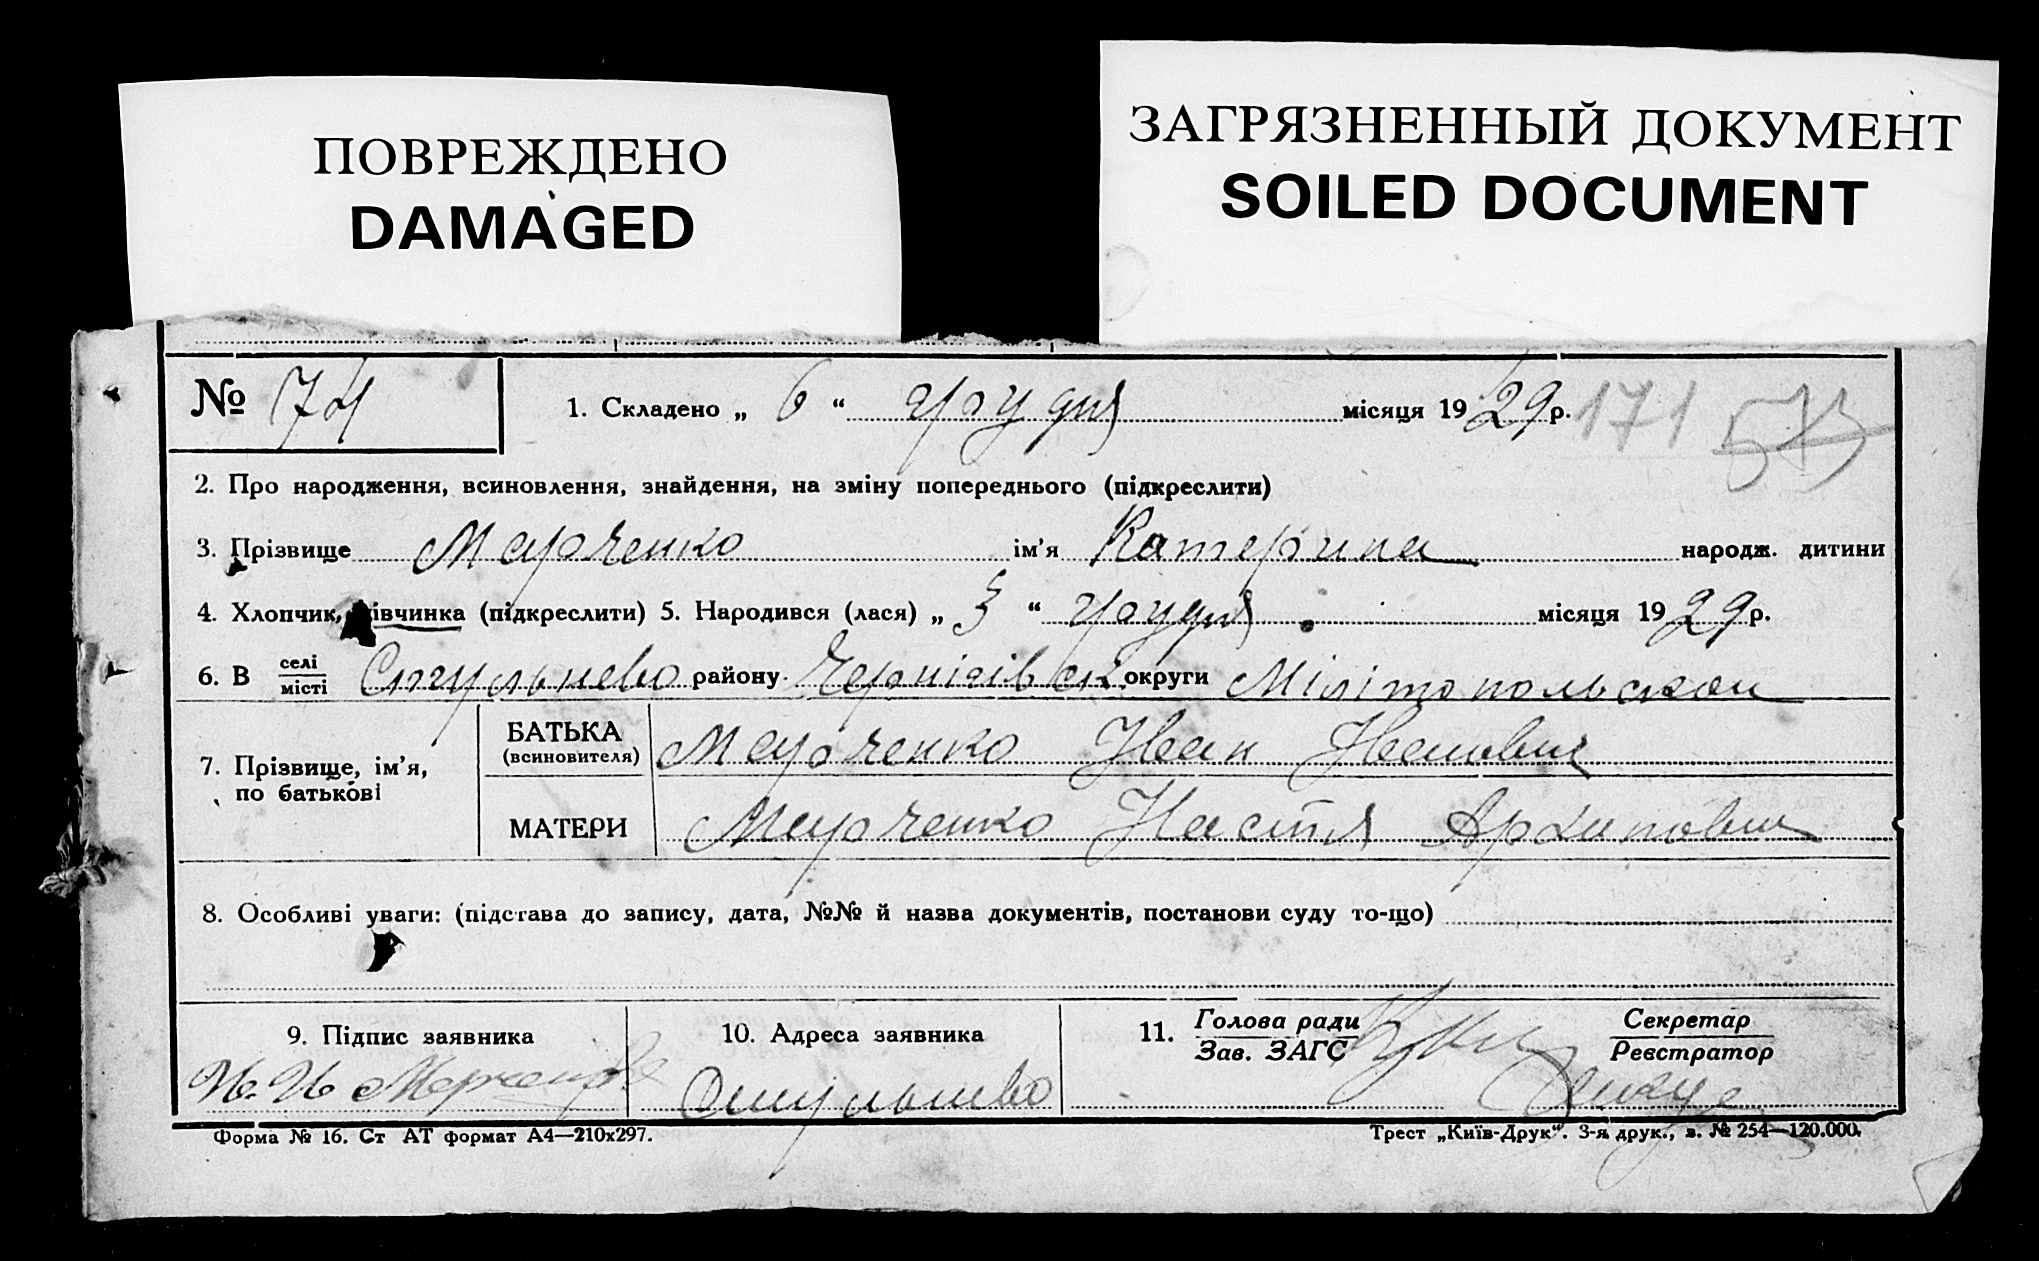 ПОВРЕЖДЕНО
DAMAGED
ЗАГРЯЗНЕННЫЙ ДОКУМЕНТ
SOILED DOCUMENT
№ 74
1. Складено „ 6 “ грудня місяця 1929 р. 171 573
2. Про народження, всиновлення, знайдення, на зміну попереднього (підкреслити)
3. Прізвище Марченко ім'я Катерина народж. дитини
4. Хлопчик, івчинка (підкреслити) 5. Народився (лася) „ 3 “ грудня місяця 1929 р.
6. В селі/місті Стульнево району Чернігівськ округи Мілітопольской
7. Прізвище, ім'я, по батькові
БАТЬКА (всиновителя) Марченко Иван Иванович
МАТЕРИ Марченко Настя Архиповна
8. Особливі уваги: (підстава до запису, дата, №№ й назва документів, постанови суду то-що)
9. Підпис заявника
И. И Марченко
10. Адреса заявника
Стульнево
11. Голова ради
Зав. ЗАГС
Секретар
Реєстратор
Форма № 16. Ст АТ формат А4—210х297.
Трест „Київ-Друк“. 3-я друк., з. № 254—120.000.